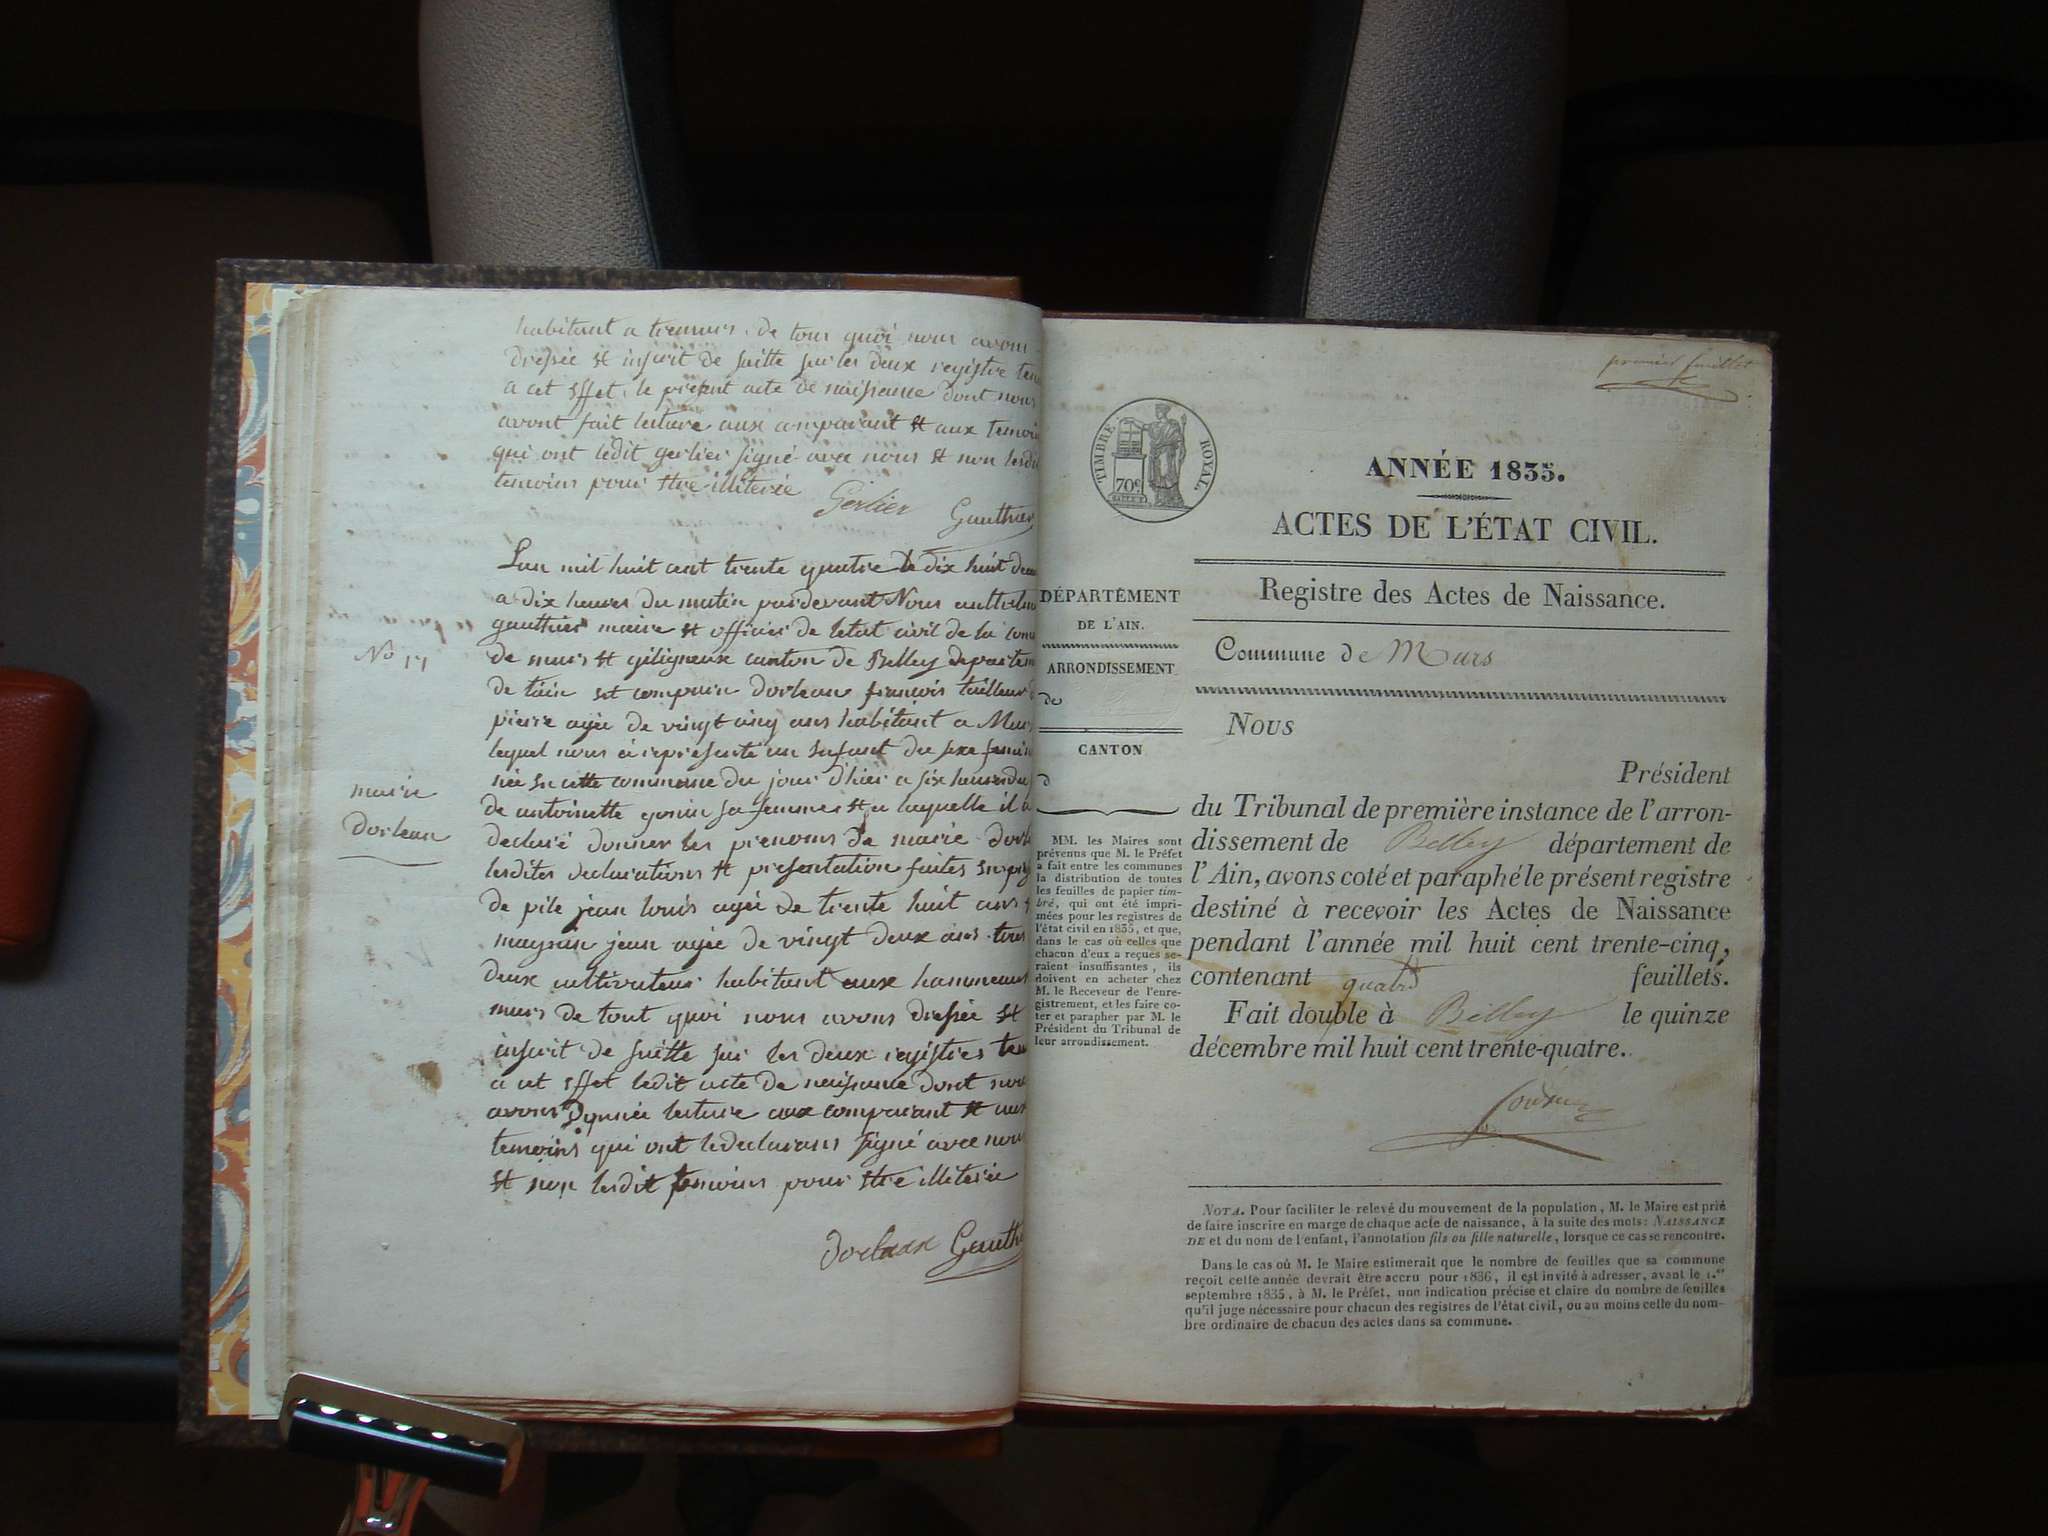 habitant a tremurs. de tous quoi nous avons
dressée et inscrit de suitte sur les deux registre ten
a cet effet, le présent acte de naissance dont nous
avont fait lecture aux comparant et aux temoin
qui ont ledit gerlier signé avec nous et non lesdit
temoins pour etre illiterée
Gerlier Gauthier
Lan mil huit cent trente quatre le dix huit
a dix heures du matin pardevant Nous
gauthier maire et officier de letat civil de la com
No 17
de murs et geligneux canton de Belley departem
de lain est comparu dorlean françois tailleur d
pierre agée de vingt cinq ans habitant a Murs
lequel nous a représenté un enfant du sexe femin
née en cette commune du jour d'hier a six heures du
de antoinette gonin sa femme et a laquelle il a
declaré donner les prenoms de marie dorle
marie
dorlean
lesdites declarations et presentation faites en pres
de pile jean louis agée de trente huit ans et
jean agée de vingt deux ans tous
deux cultivateurs habitant aux hammeaux
murs de tout quoi nous avons dressée et
inscrit de suitte sur les deux registres ten
a cet effet ledit acte de naissance dont nous
avons donnée lecture aux comparant et aux
temoins qui ont le declarans signé avec nous
et non lesdit temoins pour etre illiterée
dorlean Gauthi
premier feuillet
TIMBRE ROYAL.
70c
ANNÉE 1835.
ACTES DE L'ÉTAT CIVIL.
DÉPARTEMENT
DE L'AIN.
ARRONDISSEMENT
de
CANTON
d
MM. les Maires sont
prévenus que M. le Préfet
a fait entre les communes
la distribution de toutes
les feuilles de papier tim-
bré, qui ont été impri-
mées pour les registres de
l'état civil en 1835, et que,
dans le cas où celles que
chacun d'eux a reçues se-
raient insuffisantes, ils
doivent en acheter chez
M. le Receveur de l'enre-
gistrement, et les faire co-
ter et parapher par M. le
Président du Tribunal de
leur arrondissement.
Registre des Actes de Naissance.
Commune de Murs
NOUS
Président
du Tribunal de première instance de l'arron-
dissement de Belley département de
l'Ain, avons coté et paraphé le présent registre
destiné à recevoir les Actes de Naissance
pendant l'année mil huit cent trente-cinq,
contenant quatre feuillets.
Fait double à Belley le quinze
décembre mil huit cent trente-quatre.
NOTA. Pour faciliter le relevé du mouvement de la population, M. le Maire est prié
de faire inscrire en marge de chaque acte de naissance, à la suite des mots: NAISSANCE
DE et du nom de l'enfant, l'annotation fils ou fille naturelle, lorsque ce cas se rencontre.
Dans le cas où M. le Maire estimerait que le nombre de feuilles que sa commune
reçoit cette année devrait être accru pour 1836, il est invité à adresser, avant le 1.er
septembre 1835, à M. le Préfet, une indication précise et claire du nombre de feuilles
qu'il juge nécessaire pour chacun des registres de l'état civil, ou au moins celle du nom-
bre ordinaire de chacun des actes dans sa commune.